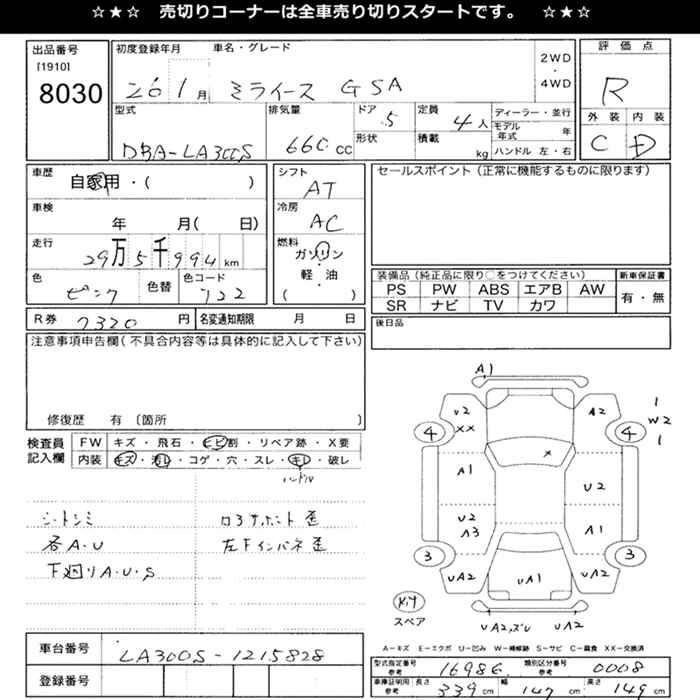 ☆★☆ 売切りコーナーは全車売り切りスタートです。 ☆★☆
出品番号
[1910]
8030
初度登録年月 車名・グレード
26 1月 ミライース GSA
2WD
・
4WD
型式 排気量 ドア 定員
DBA-LA300S 660cc 5 4人
形状 積載 kg
ディーラー・並行
モデル年式 年
ハンドル 左・右
評価点
R
外装 内装
C D
車歴
自家用・( )
車検
年 月( 日)
走行
29万5千994km
色 色替 色コード
ピンク 122
シフト
AT
冷房
AC
燃料
ガソリン
・
軽油
( )
セールスポイント(正常に機能するものに限ります)
装備品(純正品に限り○をつけてください) 新車保証書
PS PW ABS エアB AW 有・無
SR ナビ TV カワ
R券 7320円 名変通知期限 月 日
後日品
注意事項申告欄(不具合内容等は具体的に記入して下さい)
修復歴 有 〔箇所 〕
検査員
記入欄
FW キズ・飛石・ヒビ割・リペア跡・X要
内装 キズ・汚れ・コゲ・穴・スレ・キレ・破レ
ハンドル
シートシミ ロアサポート歪
各A・U 左下インパネ歪
下廻りA・U・S
A1
U2 A2
XX
4 4
1
W2
1
×
A1 U2
U2
A3 A1
3 3
UA2 UA1 UA2
キット
スペア
UA2,ズレ UA2
A−キズ E−エクボ U−凹み W−補修跡 S−サビ C−腐食 XX−交換済
車台番号 LA300S-1215828
登録番号
型式指定番号 参考 16986 類別区分番号 参考 0008
車庫証明用 参考 長さ 339cm 幅 147cm 高さ 149cm